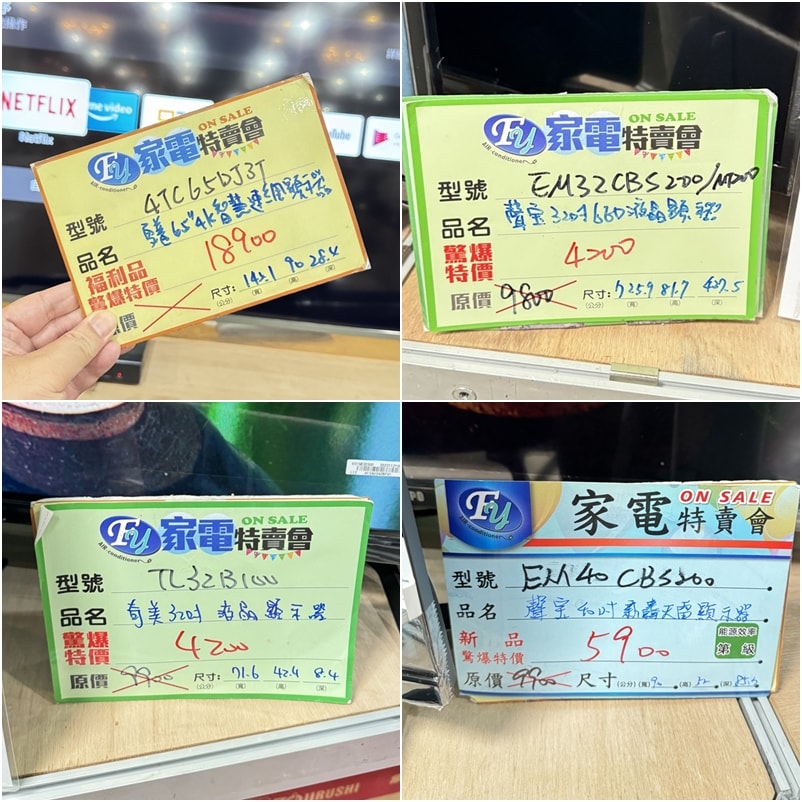 NETFLIX
prime video
Netflix
YouTube
Fy 家電特賣會 ON SALE
AIR-conditioner
型號 4TC65DJ3T
品名 65"4K智慧連網顯示器
福利品
驚爆特價 18900
原價
尺寸: 142.1 90 28.4
(公分) (寬) (高) (深)
Fy 家電特賣會 ON SALE
AIR-conditioner
型號 EM32CBS200/
品名 聲宝32吋LED液晶顯示器
驚爆
特價 4200
原價 9800 尺寸: 725.9 81.7 427.5
(公分) (寬) (高) (深)
Fy 家電特賣會 ON SALE
AIR-conditioner
型號 TL32B100
品名 奇美32吋液晶顯示器
驚爆
特價 4200
原價 9900 尺寸: 71.6 42.4 8.4
(公分) (寬) (高) (深)
Fy 家電特賣會 ON SALE
AIR-conditioner
型號 EM40CBS200
品名 聲宝40吋 顯示器
新品
驚爆特價 5900
能源效率
第 級
原價 9900 尺寸 (公分) (寬) 90 (高) 52 (深)